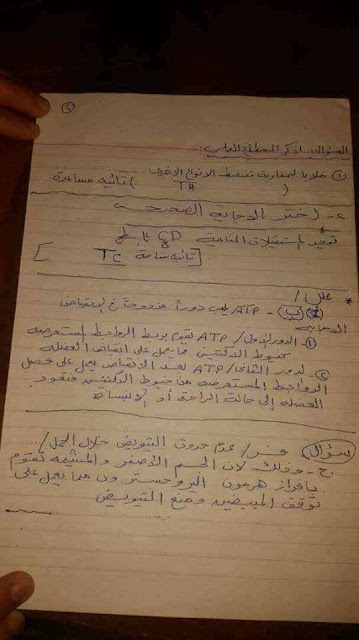 ٥
السؤال: اذكر المصطلح العلمي:
١) خلايا لمفاوية تنشط الأنواع الأخرى
( TH ) تائية مساعدة
٢- اختر الاجابة الصحيحة
توجد المستقبلات المناعية CD8 على
[ تائية سامة TC ]
علل /
ATP يلعب دوراً مزدوجاً في انقباض
العضلة
١- الدور الأول / ATP تقوم بربط الروابط المستعرضة
بخيوط الاكتين مما يعمل على انقباض العضلة
٢- الدور الثاني / ATP بعد الانقباض يعمل على فصل
الروابط المستعرضة من خيوط الاكتين فتعود
العضلة إلى حالة الراحة أو الانبساط
سؤال فسر / عدم حدوث التبويض خلال الحمل /
ج- وذلك لأن الجسم الأصفر والمشيمة تقوم
بافراز هرمون البروجسترون مما يعمل على
توقف المبيضين ومنع التبويض